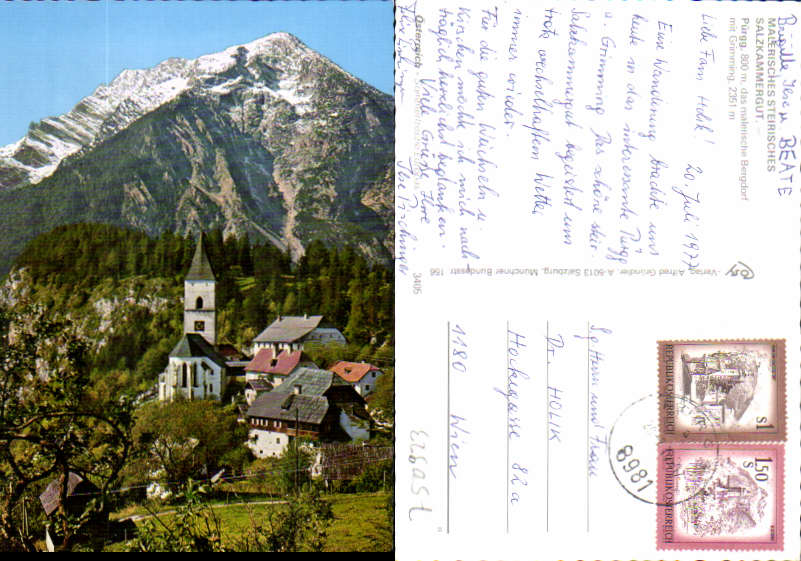 MALERISCHES STEIRISCHES
SALZKAMMERGUT. –
Pürgg, 800 m, das malerische Bergdorf
mit Grimming, 2351 m
BEATE
20. Juli 1977
Liebe Fam. Holik!
Eine Wanderung brachte uns
heute in das interessante Pürgg
u. Grimming. Das schöne steir.
Salzkammergut begeistert uns
trotz wechselhaftem Wetter
immer wieder.
Für die guten Weichseln u.
Kirschen möchte ich mich nach-
träglich herzlichst bedanken.
Viele Grüße Ihre
Österreich
Verlag Alfred Gründler A-5013 Salzburg, Münchner Bundesstr. 156
3405
Herrn und Frau
Dr. HOLIK
Hockegasse 82a
1180 Wien
REPUBLIK ÖSTERREICH
S1
REPUBLIK ÖSTERREICH
1.50
S
8981